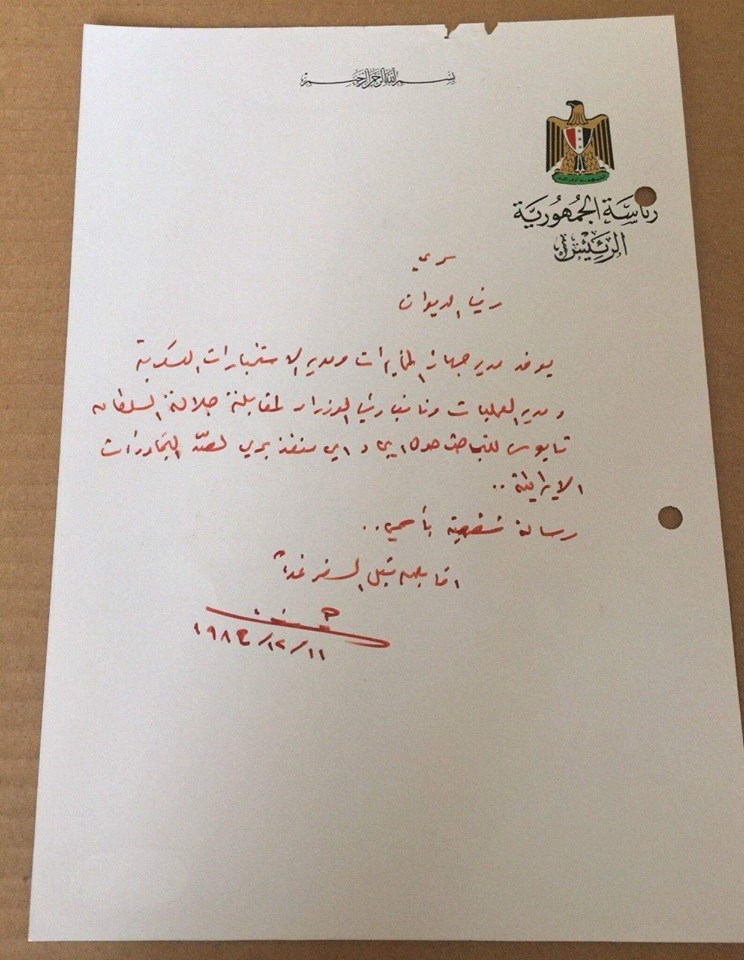 بسم الله الرحمن الرحيم
رئاسة الجمهورية
الرئيس
سري
رئيس الديوان
يوفد مدير جهاز المخابرات ومدير الاستخبارات العسكرية
ومدير العمليات ونائب رئيس الوزراء لمقابلة جلالة السلطان
قابوس للتباحث حول اي منفذ بحري لصد التجاوزات
الايرانية ..
رسالة شفهية بأسمي ..
اقابلهم قبل السفر غداً
١١/١٢/١٩٨٤